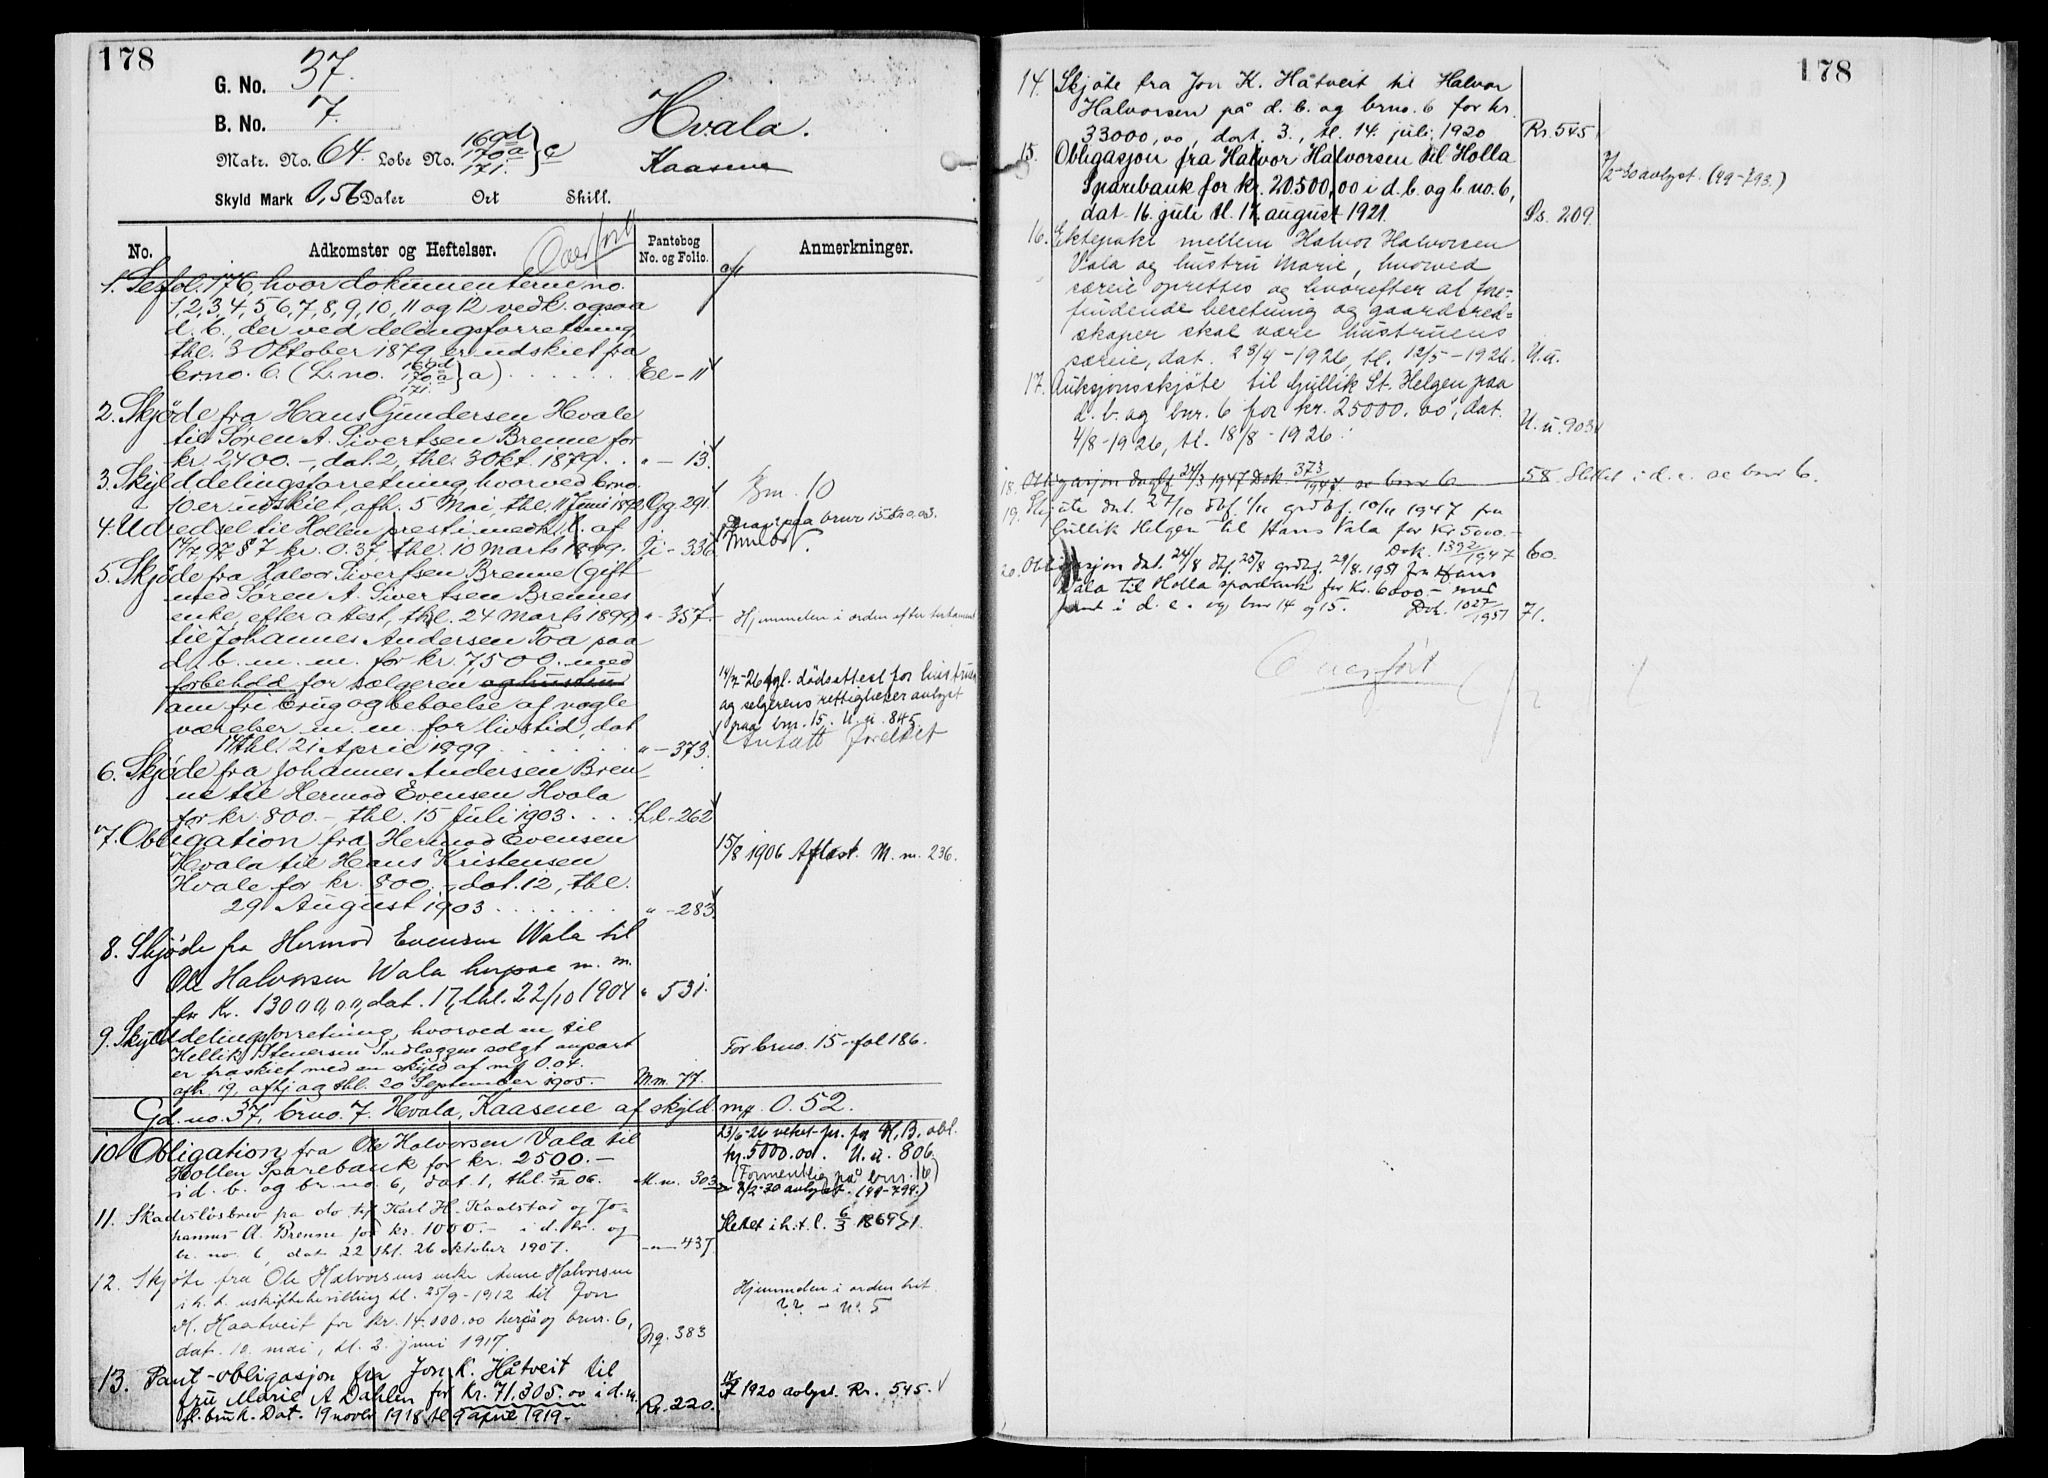 178
G. No. 37.
B. No. 7.
Matr. No. 64. Løbe No. 169d 170a 171. } c
Skyld Mark 0,56 Daler Ort Skill.
Hvala.
Kaasene
No. Adkomster og Heftelser. Pantebog No. og Folio. Anmerkninger.
Overført
1. Se fol. 176, hvor dokumenterne no.
1, 2, 3, 4, 5, 6, 7, 8, 9, 10, 11 og 12 vedk. ogsaa
d. b., der ved delingsforretning
thl. 3 Oktober 1879 er udskiet fra
brno. 6. (L. no. 169d 170a 171. } a) . . . . Ee - 11
2. Skjøde fra Hans Gundersen Hvale
til Søren A. Sivertsen Brenne for
kr. 2400. -, dat. 2, thl. 3 Okt. 1879. . . " - 13.
3. Skylddelingsforretning hvorved brno.
10 er udskiet, afh. 5 Mai, thl. 11 Juni 1892. Gg. 291. Brn. 10
4. Udredsel til Hollen præsti medh. l. af
14/7 92 § 7 kr. 0.37 thl. 10 Marts 1899. Ji - 336
5. Skjøde fra Halvor Sivertsen Brenne (gift
med Søren A. Sivertsen Brennes
enke, efter atest, thl. 24 Marts 1899) " - 357. - Hjemmelen i orden efter testament
til Johannes Andersen Toa paa
d. b. m. m. for kr. 7,500. - med
forbehold for sælgeren og hustru
om fri brug og beboelse af nogle
værelser m. m. for livstid, dat
14, thl. 21 April 1899 . . . . " - 373.
14/7-26 tgl. dødsattest for hustruen
og selgerens rettigheter avlyst
paa bnr. 15. U. u. 845
6. Skjøde fra Johannes Andersen Bren
ne til Hermod Evensen Hvala
for kr. 800. -, thl. 15 Juli 1903. . . . Ll - 262
7. Obligation fra Hermod Evensen
Hvala til Hans Kristensen
Hvale for kr. 800. -, dat. 12, thl.
29 August 1903 . . . . " - 283.
15/8 1906 Aflæst. M. m. 236.
8. Skjøde fra Hermod Evensen Wala til
Ole Halvorsen Wala herpaa m. m.
for Kr. 13000,00, dat. 17, thl. 22/10 1904 " 531.
9. Skylddelingsforretning, hvorved en til
Kellik Stenersen Indlæggen solgt anpart
er fraskiet med en skyld af mk 0.04.
afh. 19, afhj og thl. 20 September 1905. - M.m. 77.
For brno. 15 - fol 186.
Gd. no. 37, brno. 7. Hvala, Kaasene af skyld mk. 0.52.
10. Obligation fra Ole Halvorsen Vala til
Hollen Sparebank for kr. 2500. -
i d. b. og br. no. 6, dat. 1, thl. 5/12 06. M. m. 303
23/6-26 veket pr. for H. B. obl.
kr. 5000.00. U. u. 806.
(Formentlig på bnr. 16)
7/2-30 avlyst. (49-794.)
11. Skadesløsbrev fra do til Karl H. Kaalstad og Jo-
hannes A. Brenne for kr. 1000. - i d. br. og
br. no. 6, dat 22 thl. 26 oktober 1907. -"- 437.
Slettet i h. t. l. 6/3 1869 § 1.
12. Skjøte fra Ole Halvorsens enke Anne Halvorsen
i h. t. uskiftebevilling tl. 25/9-1912 til Jon
K. Haatveit for kr. 14.000.00 herpå og bnr. 6,
dat. 10. mai, tl. 2. juni 1917. Qq. 383
Hjemmelen i orden
13. Pant-obligasjon fra Jon K. Håtveit til
fru Marie A Dahlen for kr. 71.305.00 i d. m.
fl. bruk. Dat. 19 novbr 1918 tl 9 april 1919. - Rr. 220.
1920 avlyst. Rr. 545.
178
14. Skjøte fra Jon K. Håtveit til Halvor
Halvorsen på d. b. og brno. 6 for kr.
33000,00, dat. 3., tl. 14. juli 1920 Rr. 545
15. Obligasjon fra Halvor Halvorsen til Holla
Sparebank for kr. 20.500,00 i d. b. og b. no. 6,
dat. 16. juli tl. 17. august 1921. Ss. 209.
7/2-30 avlyst. (49-793.)
16. Ektepakt mellem Halvor Halvorsen
Vala og hustru Marie, hvorved
særeie oprettes og hvorefter al fore-
findende besetning og gaardsred-
skaper skal være hustruens
særeie, dat. 28/4-1926, tl. 12/5-1926. U. u.
17. Auksjonsskjøte til Gullik St. Helgen paa
d. b. og bnr. 6 for kr. 25000.00, dat.
4/8-1926, tl. 18/8-1926. U. u. 903
18. Obligasjon dagbf. 24/3 1947 Dok. 373/1947. se bnr 6 58. Slettet i d. e. se bnr 6.
19. Skjøte dat. 27/10 dbf. 1/11 grdbf. 10/11 1947 fra
Gullik Helgen til Hans Vala for kr 5000.-
Dok. 1392/1947 60.
20. Obligasjon dat. 24/8 dbf. 25/8 grdbf. 29/8 1951 fra Hans
Vala til Holla sparebank for kr. 6000.- med
pant i d. e. og bnr 14 og 15. Dok. 1027/1951 71.
Overført